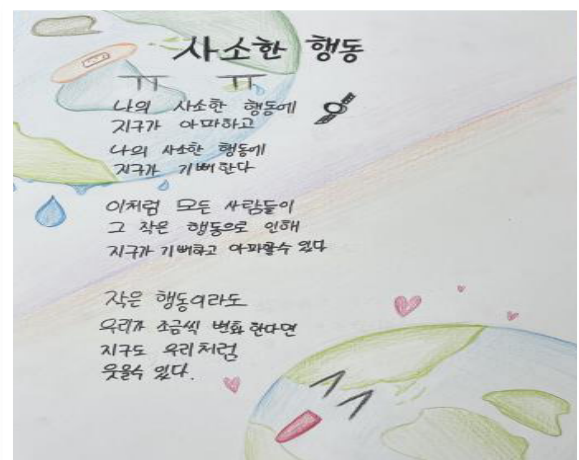 사소한 행동
나의 사소한 행동에
지구가 아파하고
나의 사소한 행동에
지구가 기뻐한다
이처럼 모든 사람들이
그 작은 행동으로 인해
지구가 기뻐하고 아파할수 있다
작은 행동이라도
우리가 조금씩 변화 한다면
지구도 우리처럼
웃을수 있다.